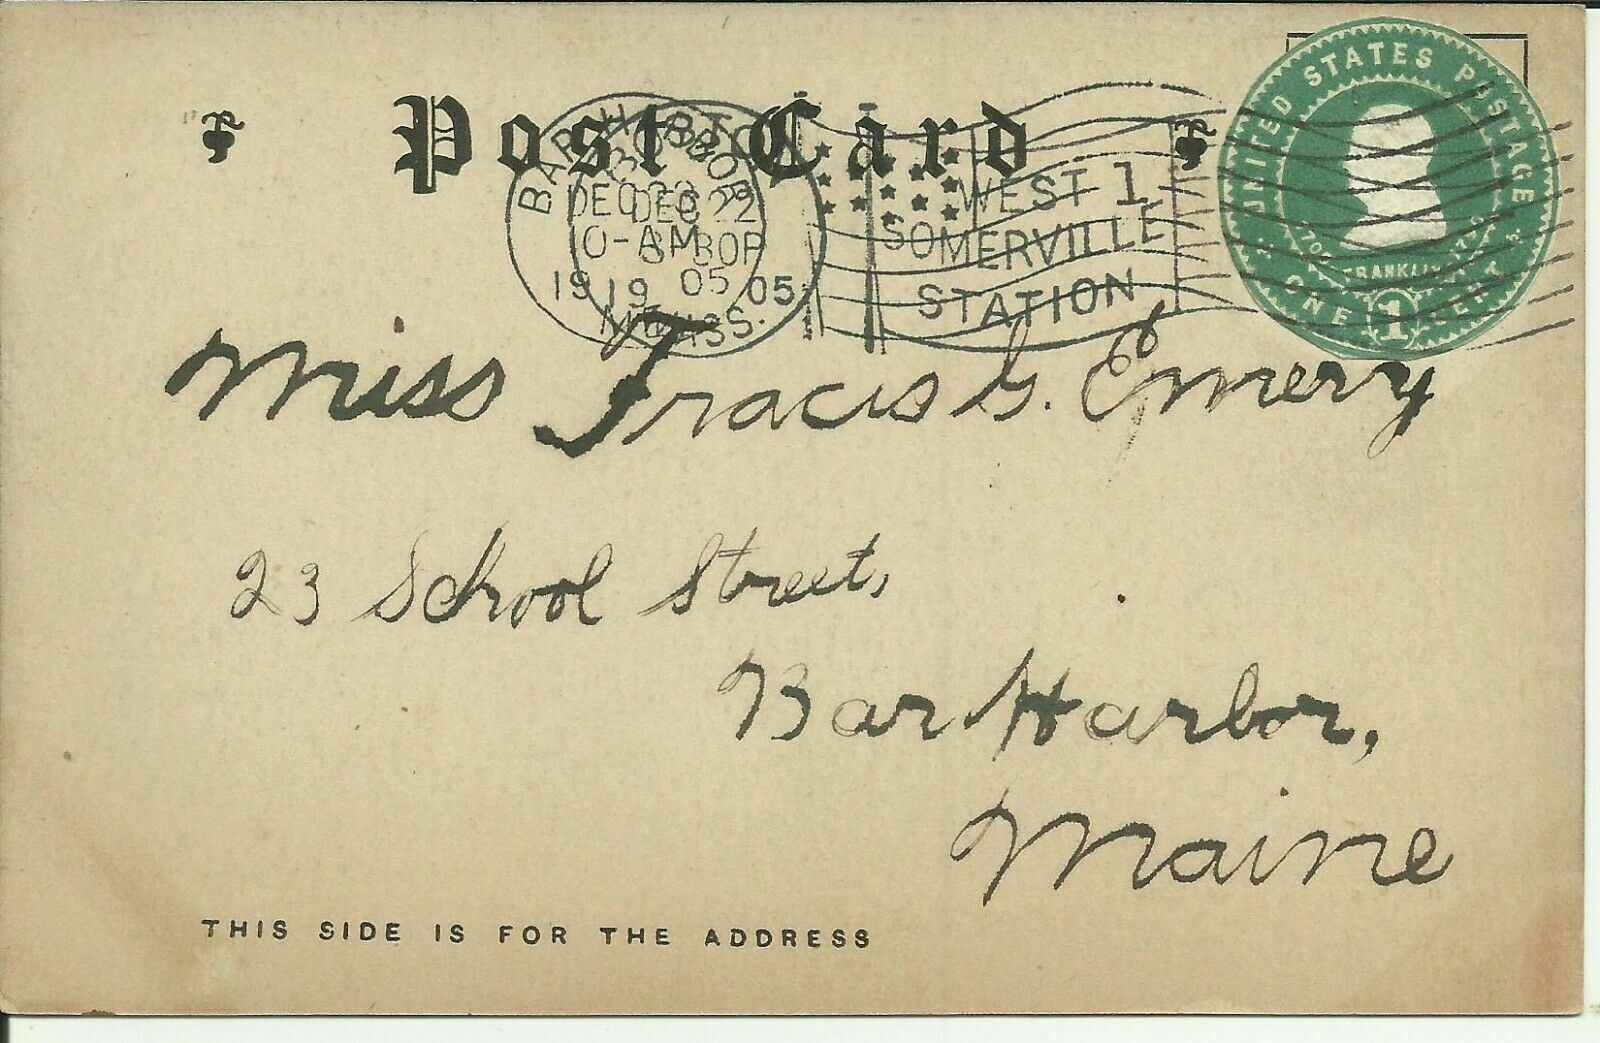 Post Card
UNITED STATES POSTAGE
FRANKLIN
ONE 1 CENT
BAR HARBOR
BOSTON
DEC 23
DEC 22
10-AM
8-30P
1905
1905
MASS.
WEST 1
SOMERVILLE
STATION
Miss Fracis G. Emery
23 School Street,
Bar Harbor,
Maine
THIS SIDE IS FOR THE ADDRESS